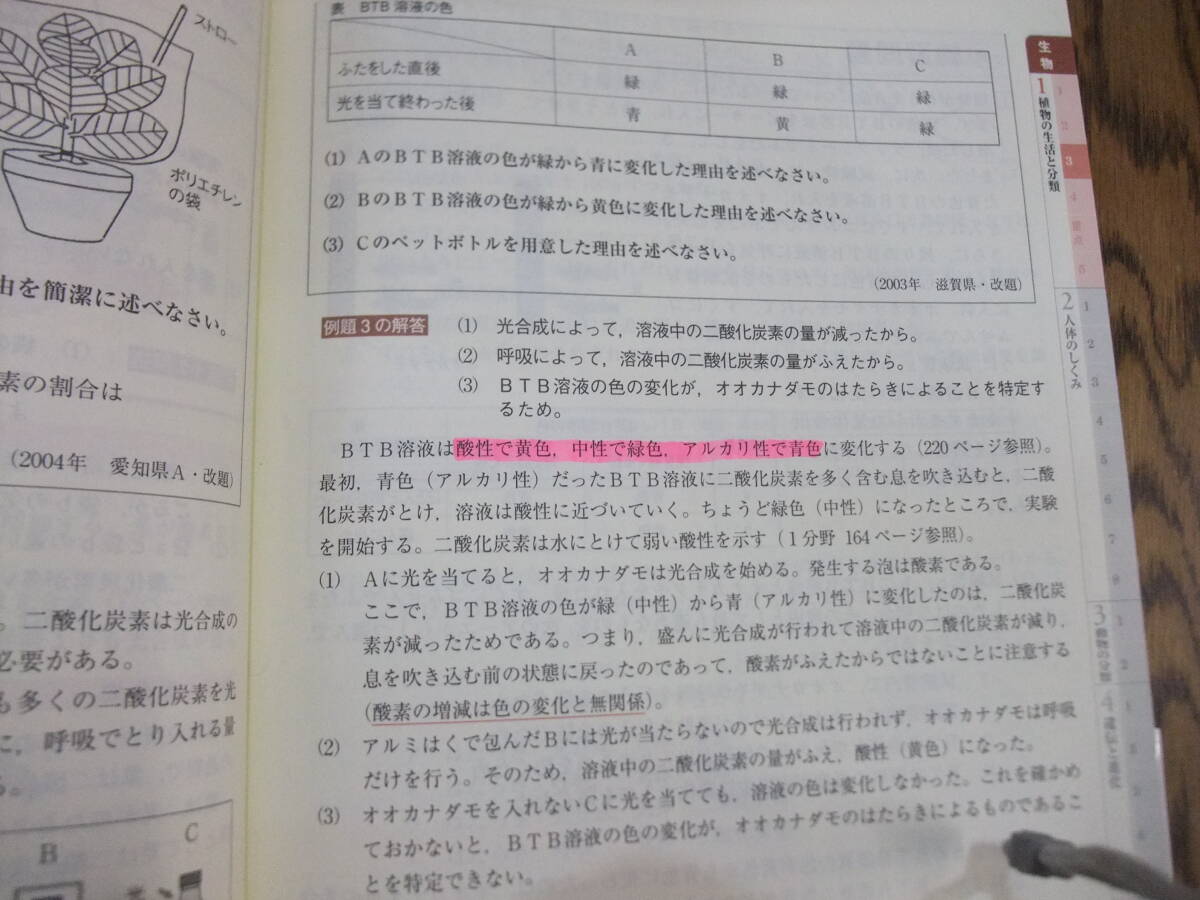 ストロー
ポリエチレン
の袋
由を簡潔に述べなさい。
素の割合は
(2004年 愛知県A・改題)
。二酸化炭素は光合成の
必要がある。
も多くの二酸化炭素を光
に，呼吸でとり入れる量
る。
B
C
表 BTB溶液の色
A B C
ふたをした直後 緑 緑 緑
光を当て終わった後 青 黄 緑
(1) AのBTB溶液の色が緑から青に変化した理由を述べなさい。
(2) BのBTB溶液の色が緑から黄色に変化した理由を述べなさい。
(3) Cのペットボトルを用意した理由を述べなさい。
(2003年 滋賀県・改題)
例題3の解答 (1) 光合成によって，溶液中の二酸化炭素の量が減ったから。
(2) 呼吸によって，溶液中の二酸化炭素の量がふえたから。
(3) BTB溶液の色の変化が，オオカナダモのはたらきによることを特定す
るため。
BTB溶液は酸性で黄色，中性で緑色，アルカリ性で青色に変化する（220ページ参照）。
最初，青色（アルカリ性）だったBTB溶液に二酸化炭素を多く含む息を吹き込むと，二酸
化炭素がとけ，溶液は酸性に近づいていく。ちょうど緑色（中性）になったところで，実験
を開始する。二酸化炭素は水にとけて弱い酸性を示す（1分野 164ページ参照）。
(1) Aに光を当てると，オオカナダモは光合成を始める。発生する泡は酸素である。
ここで，BTB溶液の色が緑（中性）から青（アルカリ性）に変化したのは，二酸化炭
素が減ったためである。つまり，盛んに光合成が行われて溶液中の二酸化炭素が減り，
息を吹き込む前の状態に戻ったのであって，酸素がふえたからではないことに注意する
（酸素の増減は色の変化と無関係）。
(2) アルミはくで包んだBには光が当たらないので光合成は行われず，オオカナダモは呼吸
だけを行う。そのため，溶液中の二酸化炭素の量がふえ，酸性（黄色）になった。
(3) オオカナダモを入れないCに光を当てても，溶液の色は変化しなかった。これを確かめ
ておかないと，BTB溶液の色の変化が，オオカナダモのはたらきによるものであるこ
とを特定できない。
生物
1 植物の生活と分類
1
2
3
4
重点
5
2 人体のしくみ
1
2
3
4
5
6
7
8
9
3 動物の分類
1
2
4 遺伝と進化